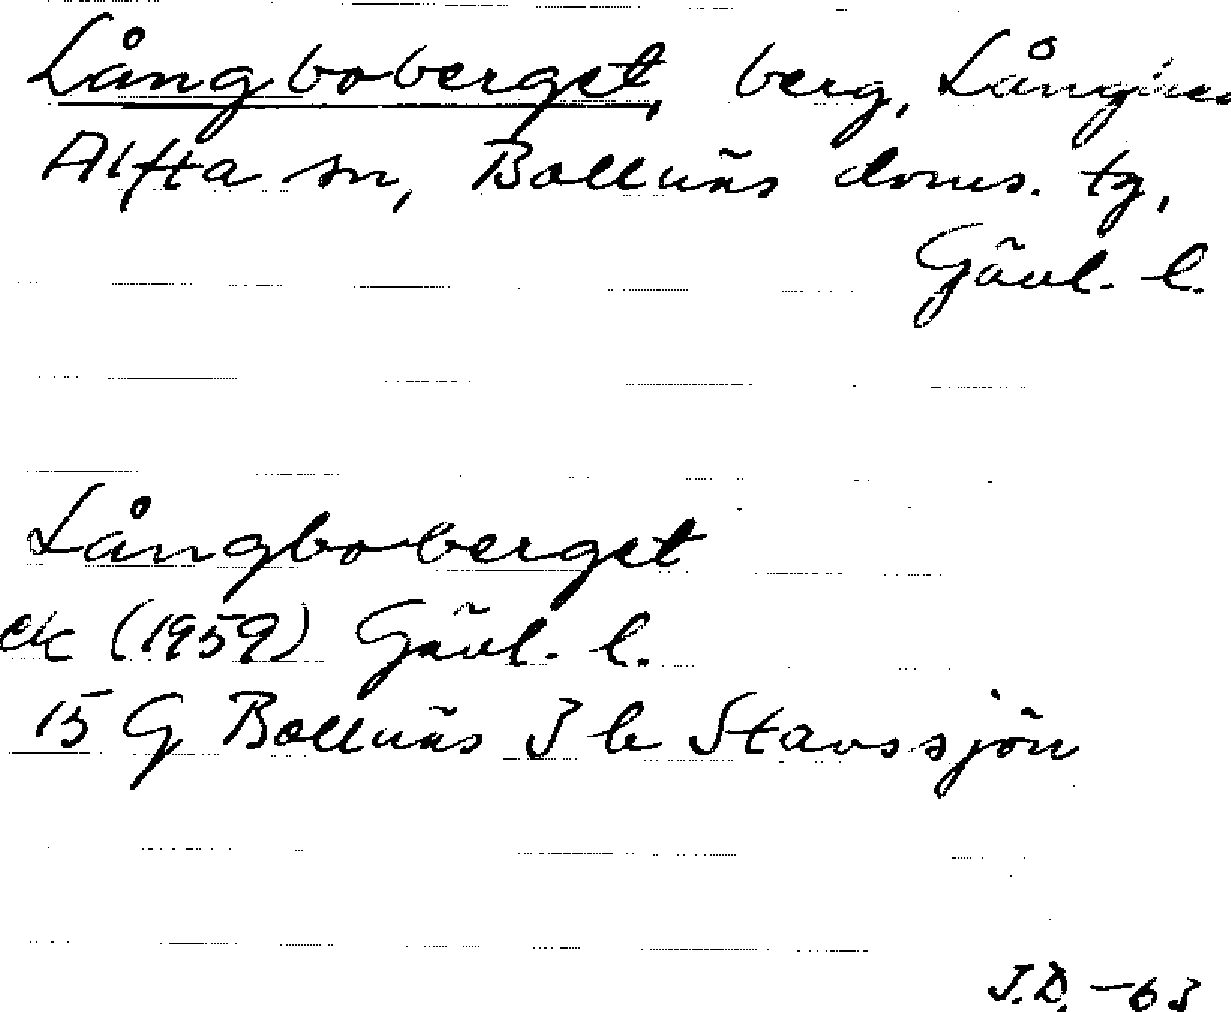 Långboberget, berg, Långnes
Alfta sn, Bollnäs doms. tg,
Gävl. l.
Långboberget
ek (1959) Gävl. l.
15 G Bollnäs 3 b Stavssjön
J.D. -63